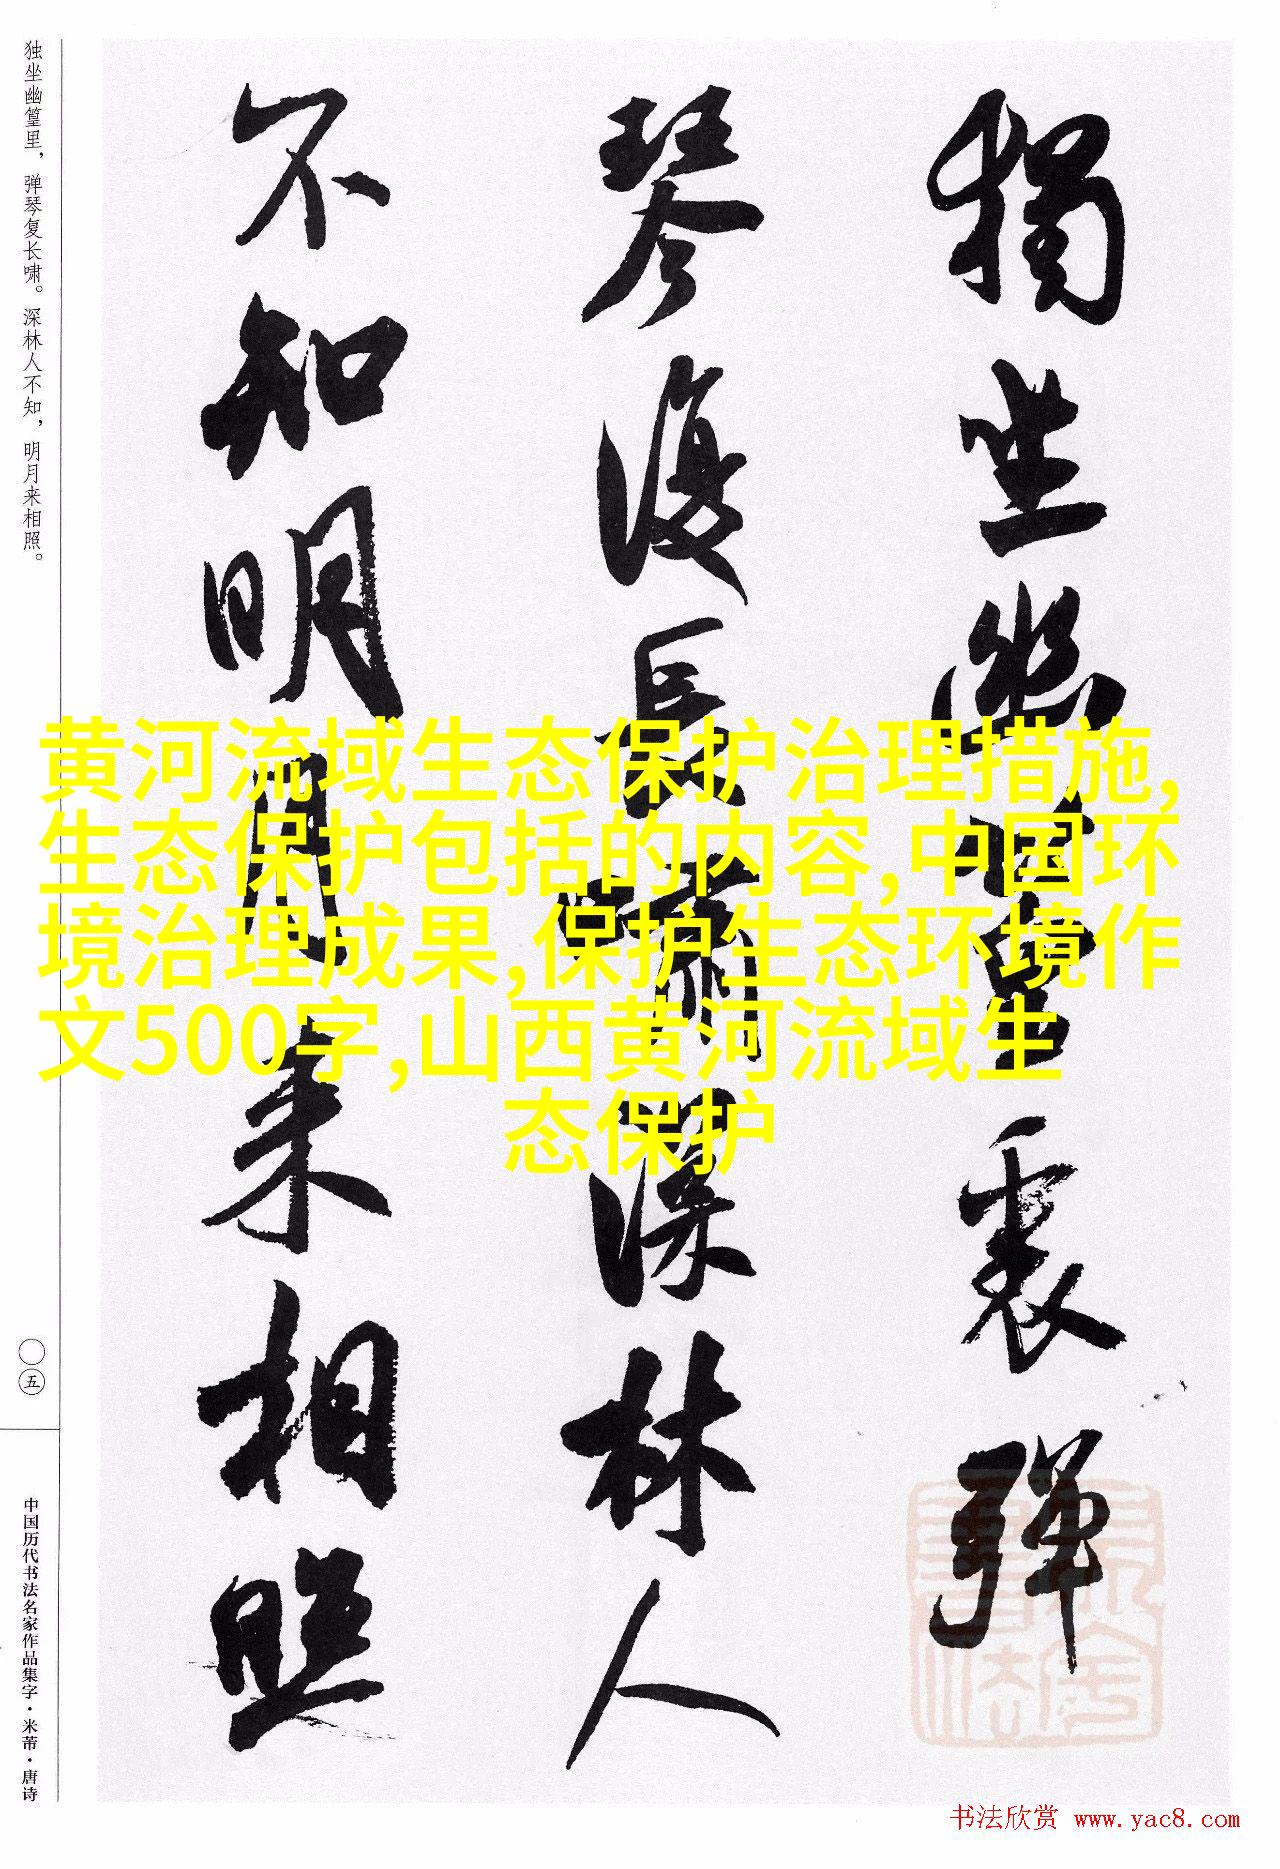 獨坐幽篁裏彈
琴復長嘯深林人
不知明月来相照
独坐幽篁里，弹琴复长啸。深林人不知，明月来相照。
〇五
中国历代书法名家作品集字·米芾·唐诗
黄河流域生态保护治理措施,
生态保护包括的内容,中国环
境治理成果,保护生态环境作
文500字,山西黄河流域生
态保护
书法欣赏 www.yac8.com